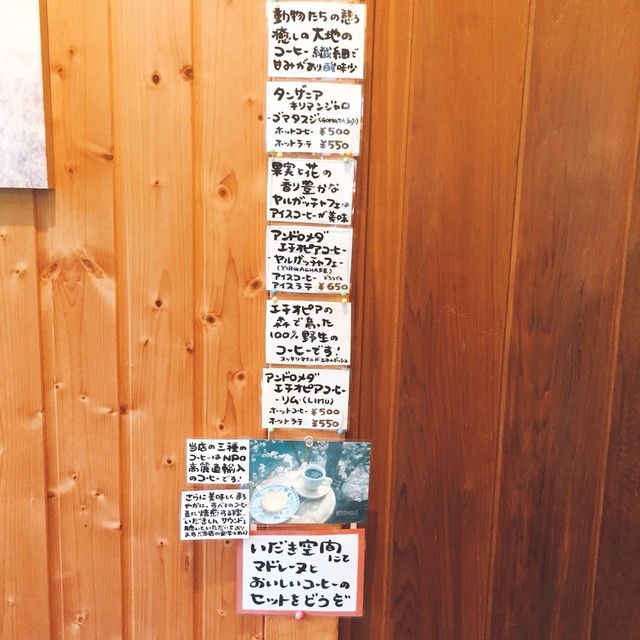 動物たちの憩う
癒しの大地の
コーヒー繊細で
甘みがあり酸味少
タンザニア
キリマンジャロ
-ゴマタスジ(GOMATASUJI)
ホットコーヒー ¥500
ホットラテ ¥550
果実と花の
香り豊かな
ヤルガッチャフェは
アイスコーヒーが美味
アンドロメダ
エチオピアコーヒー
-ヤルガッチャフェ-
(YIRGACHAFE)
アイスコーヒー どちらでも
アイスラテ ¥650
エチオピアの
森で育った
100%野生の
コーヒーです!
アンドロメダ
エチオピアコーヒー
-リム-(LIMU)
ホットコーヒー ¥500
ホットラテ ¥550
当店の三種の
コーヒーはNPO
高麗直輸入
のコーヒーです!
さらに美味しくまろ
やかに、すべてのコーヒー
豆に焙煎する際、
いだきしん サウンドを
聴いていただいており
ます
いだき空間にて
マドレーヌと
おいしいコーヒーの
セットをどうぞ